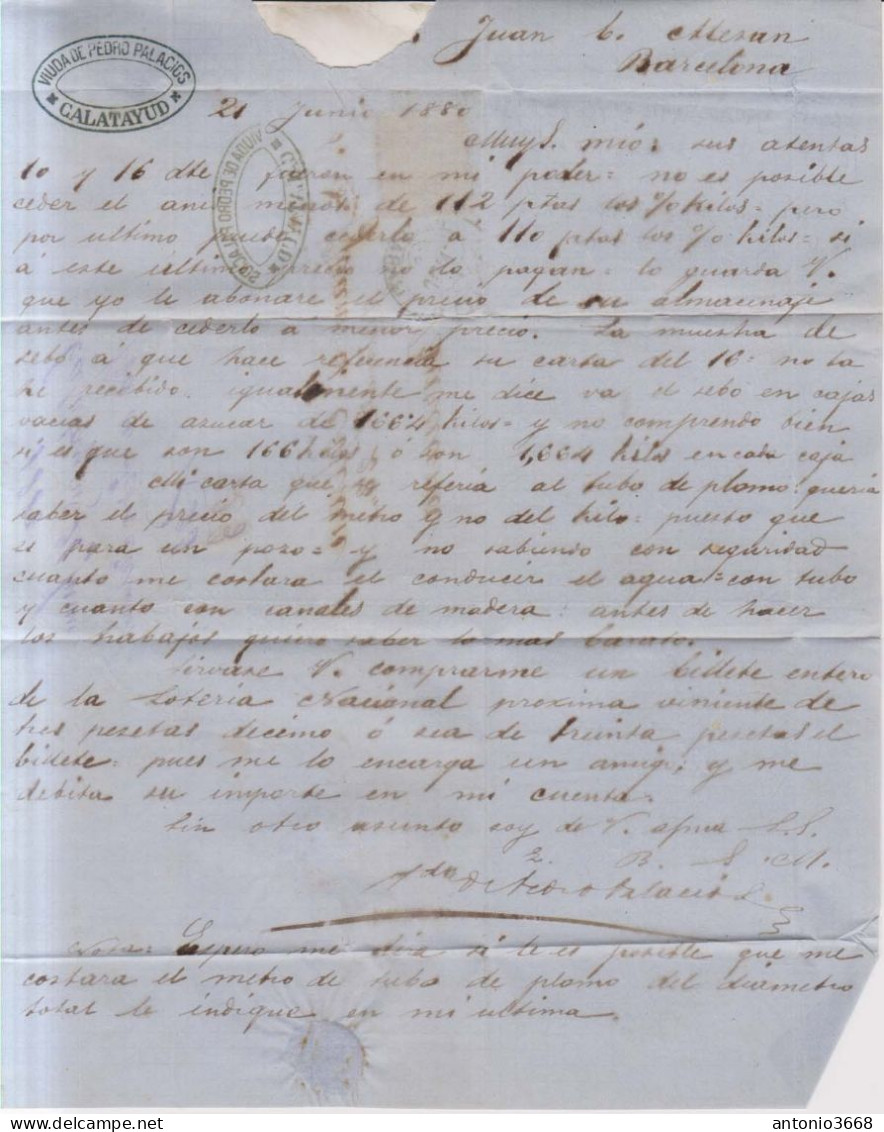 VIUDA DE PEDRO PALACIOS
CALATAYUD
Juan
Barcelona
21 Junio 1880
Muy S. mio: sus atentas
10 y 16 dte fueron en mi poder= no es posible
ceder el anis de 112 ptas los % Kilos= pero
por ultimo puede cederlo a 110 ptas los % kilos= si
á este último precio no lo pagan= lo guarda V.
que yo le abonare el precio de su almacenaje
antes de cederlo á menor precio. La muestra de
sebo á que hace referencia su carta del 16= no la
he recibido. igualmente me dice va el sebo en cajas
vacias de azucar de 166'4 kilos= y no comprendo bien
si es que son 166 kilos ó son 1,664 kilos en cada caja
Mi carta que se referia al tubo de plomo= queria
saber el precio del metro y no del kilo= puesto que
es para un pozo= y no sabiendo con seguridad
cuanto me costara el conducir el agua= con tubo
y cuanto con canales de madera: antes de hacer
los trabajos quiero saber lo mas barato.
Sirvase V. comprarme un billete entero
de la Loteria Nacional proxima viniente de
tres pesetas decimo ó sea de treinta pesetas el
billete= pues me lo encarga un amigo y me
debita su importe en mi cuenta.
Sin otro asunto soy de V. afma S.S.
Q. B. S. M.
Vda de Pedro Palacios
Nota= Espero me dira si le es posible que me
costara el metro de tubo de plomo del diametro
total le indique en mi ultima.
VIUDA DE PEDRO PALACIOS
CALATAYUD
antonio3668